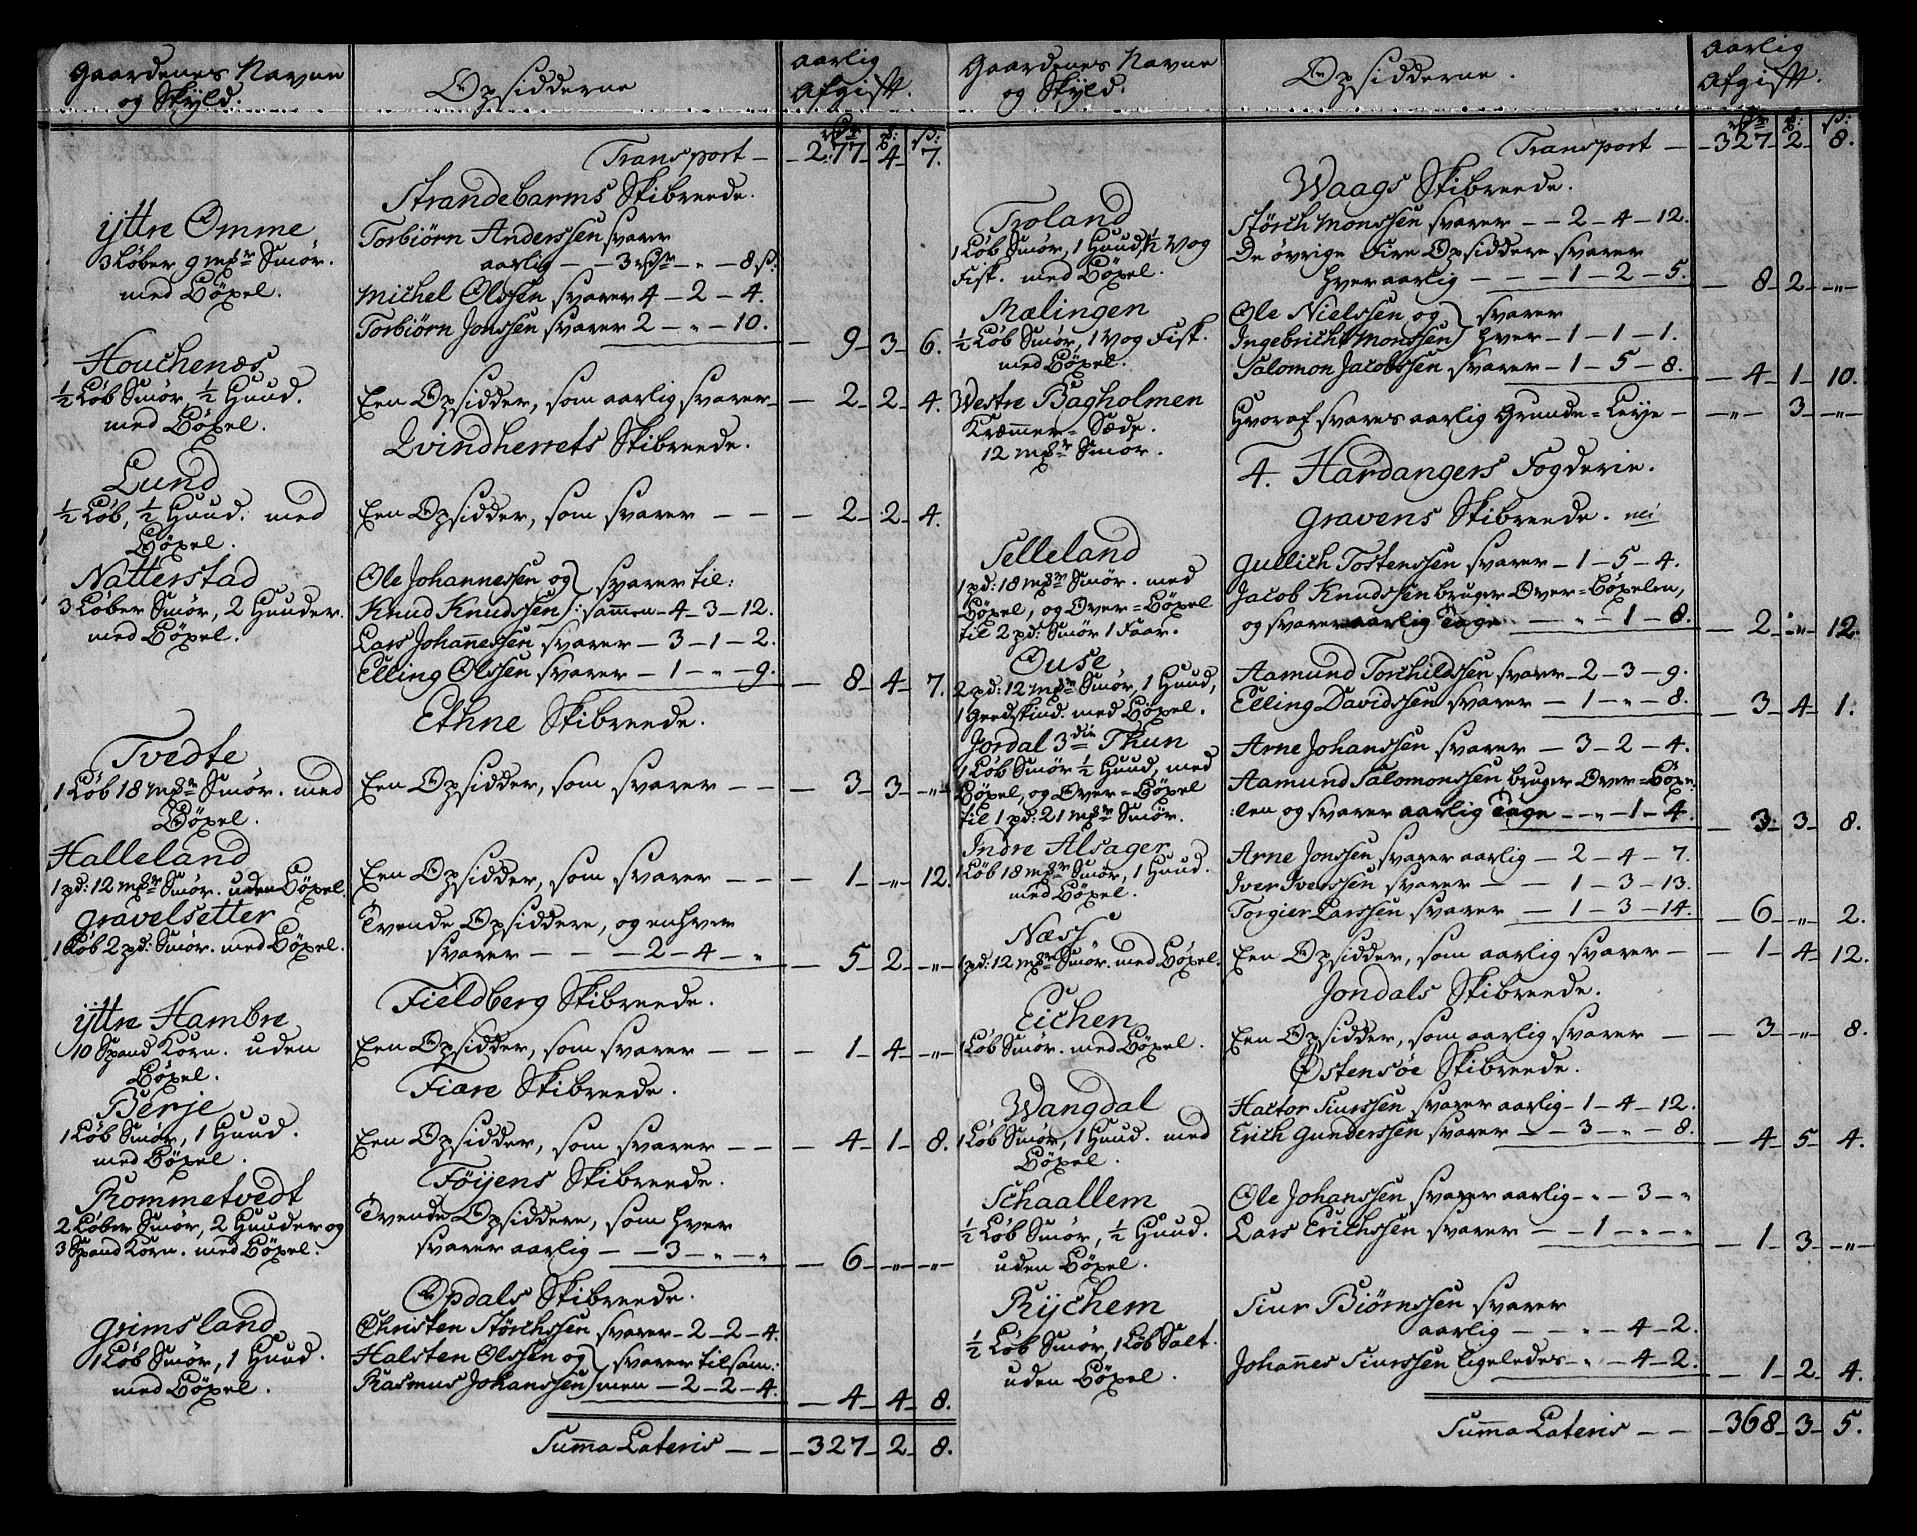 Gaardenes Navne
og Skyld.
Opsidderne
aarlig
Afgift.
rdr
ß:
Transport — 277 - 4 - 7.
Strandebarms Skibreede.
ijttre Omme
3 Løber 9 mkr Smør.
med Bøxel.
Torbiørn Anderssen svarer
aarlig — — 3 rdr - „ - 8 ß.
Michel Olssen svarer 4 - 2 - 4.
Torbiørn Jonssen svarer 2 - „ - 10. — 9 - 3 - 6.
Houchenæs
½ Løb Smør, ½ Huud.
med Bøxel.
Een Opsidder, som aarlig svarer — 2 - 2 - 4.
Qvindherrets Skibreede.
Lund
½ Løb, ½ Huud. med
Bøxel.
Een Opsidder, som svarer — — — 2 - 2 - 4.
Natterstad
3 Løber Smør, 2 Huuder.
med Bøxel.
Ole Johannessen og } svarer til:
Knud Knudssen } : sammen - 4 - 3 - 12.
Lars Johannessen svarer - 3 - 1 - 2.
Elling Olssen svarer - 1 - „ - 9. — 8 - 4 - 7.
Ethne Skibreede.
Tvedte
1 Løb 18 mkr Smør. med
Bøxel.
Een Opsidder, som svarer — — — 3 - 3 - „
Halleland
1 pd: 12 mkr Smør. uden Bøxel.
Een Opsidder, som svarer — — — 1 - „ - 12.
Gravelsetter
1 Løb 2 pd: Smør. med Bøxel.
Tvende Opsiddere, og enhver
svarer — — — 2 - 4 - „ — 5 - 2 - „
Fieldberg Skibreede.
ijttre Hambre
10 Spand Korn. uden
Bøxel.
Een Opsidder, som svarer — — — 1 - 4 - „
Fiære Skibreede.
Berje
1 Løb Smør, 1 Huud.
med Bøxel.
Een Opsidder, som svarer — — — 4 - 1 - 8.
Føijens Skibreede.
Rommetvedt
2 Løber Smør, 2 Huuder og
3 Spand Korn. med Bøxel.
Tvende Opsiddere, som hver
svarer aarlig — — 3 - „ - „ — 6 - „ - „
Opdals Skibreede.
Grimsland
1 Løb Smør, 1 Huud.
med Bøxel.
Christen Størchssen svarer - 2 - 2 - 4.
Halsten Olssen og } svarer tilsam:
Rasmus Johanssen } men - 2 - 2 - 4. — 4 - 4 - 8.
Summa Lateris — — 327 - 2 - 8.
Gaardenes Navne
og Skyld.
Opsidderne.
aarlig
Afgift.
rdr
ß:
Transport — 327 - 2 - 8.
Waags Skibreede.
Troland
1 Løb Smør, 1 Huud, ½ Vog
Fisk. med Bøxel.
Størch Monssen svarer — — 2 - 4 - 12.
De øvrige fire Opsiddere svarer
hver aarlig — — — 1 - 2 - 5. — 8 - 2 - „
Mælingen
½ Løb Smør, 1 Vog Fisk.
med Bøxel.
Ole Nielssen og } svarer
Ingebricht Monssen } hver - 1 - 1 - 1.
Salomon Jacobssen svarer - 1 - 5 - 8. — 4 - 1 - 10.
Westre Bagholmen
Kræmmer = Sæde.
12 mkr Smør.
Hvoraf svares aarlig Grunde = Leije — „ - 3 - „
4. Hardangers Fogderie.
Gravens Skibreede. nei
Selleland
1 pd: 18 mkr Smør. med
Bøxel, og Over = Bøxel
til 2 pd: Smør 1 Faar.
Gullich Tostenssen svarer - 1 - 5 - 4.
Jacob Knudssen bruger Over = Bøxelen,
og svarer aarlig Tage — „ - 1 - 8. — 2 - „ - 12.
Ouse
2 pd: 12 mkr Smør, 1 Huud,
1 Geedskind. med Bøxel.
Aamund Torchildssen svarer - 2 - 3 - 9.
Elling Davidssen svarer — 1 - „ - 8. — 3 - 4 - 1.
Jordal 3die Thun
1 Løb Smør ½ Huud, med
Bøxel, og Over = Bøxel
til 1 pd: 21 mkr Smør.
Arne Johanssen svarer — 3 - 2 - 4.
Aamund Salomonssen bruger Over = Bøxe
:len og svarer aarlig Tage — „ - 1 - 4. — 3 - 3 - 8.
Indre Alsager
1 Løb 18 mkr Smør, 1 Huud.
med Bøxel.
Arne Jonssen svarer aarlig — 2 - 4 - 7.
Iver Iverssen svarer — — 1 - 3 - 13.
Torgier Larssen svarer — 1 - 3 - 14. — 6 - „ - 2.
Næss
1 pd: 12 mkr Smør. med Bøxel.
Een Opsidder, som aarlig svarer — 1 - 4 - 12.
Jondals Skibreede.
Eichen
1 Løb Smør. med Bøxel.
Een Opsidder, som aarlig svarer — 3 - „ - 8.
Østensøe Skibreede.
Wangdal
1 Løb Smør, 1 Huud. med
Bøxel.
Hactor Siurssen svarer aarlig - 1 - 4 - 12.
Erich Gunderssen svarer — 3 - „ - 8. — 4 - 5 - 4.
Schaallem
½ Løb Smør, ½ Huud.
uden Bøxel.
Ole Johanssen svarer aarlig - „ - 3 - „
Lars Erichssen svarer — 1 - „ - „ — 1 - 3 - „
Rijchem
½ Løb Smør, 1 Løb Salt.
uden Bøxel.
Siur Biørnssen svarer
aarlig — — „ - 4 - 2.
Johannes Siurssen ligeledes - „ - 4 - 2. — 1 - 2 - 4.
Summa Lateris — — 368 - 3 - 5.